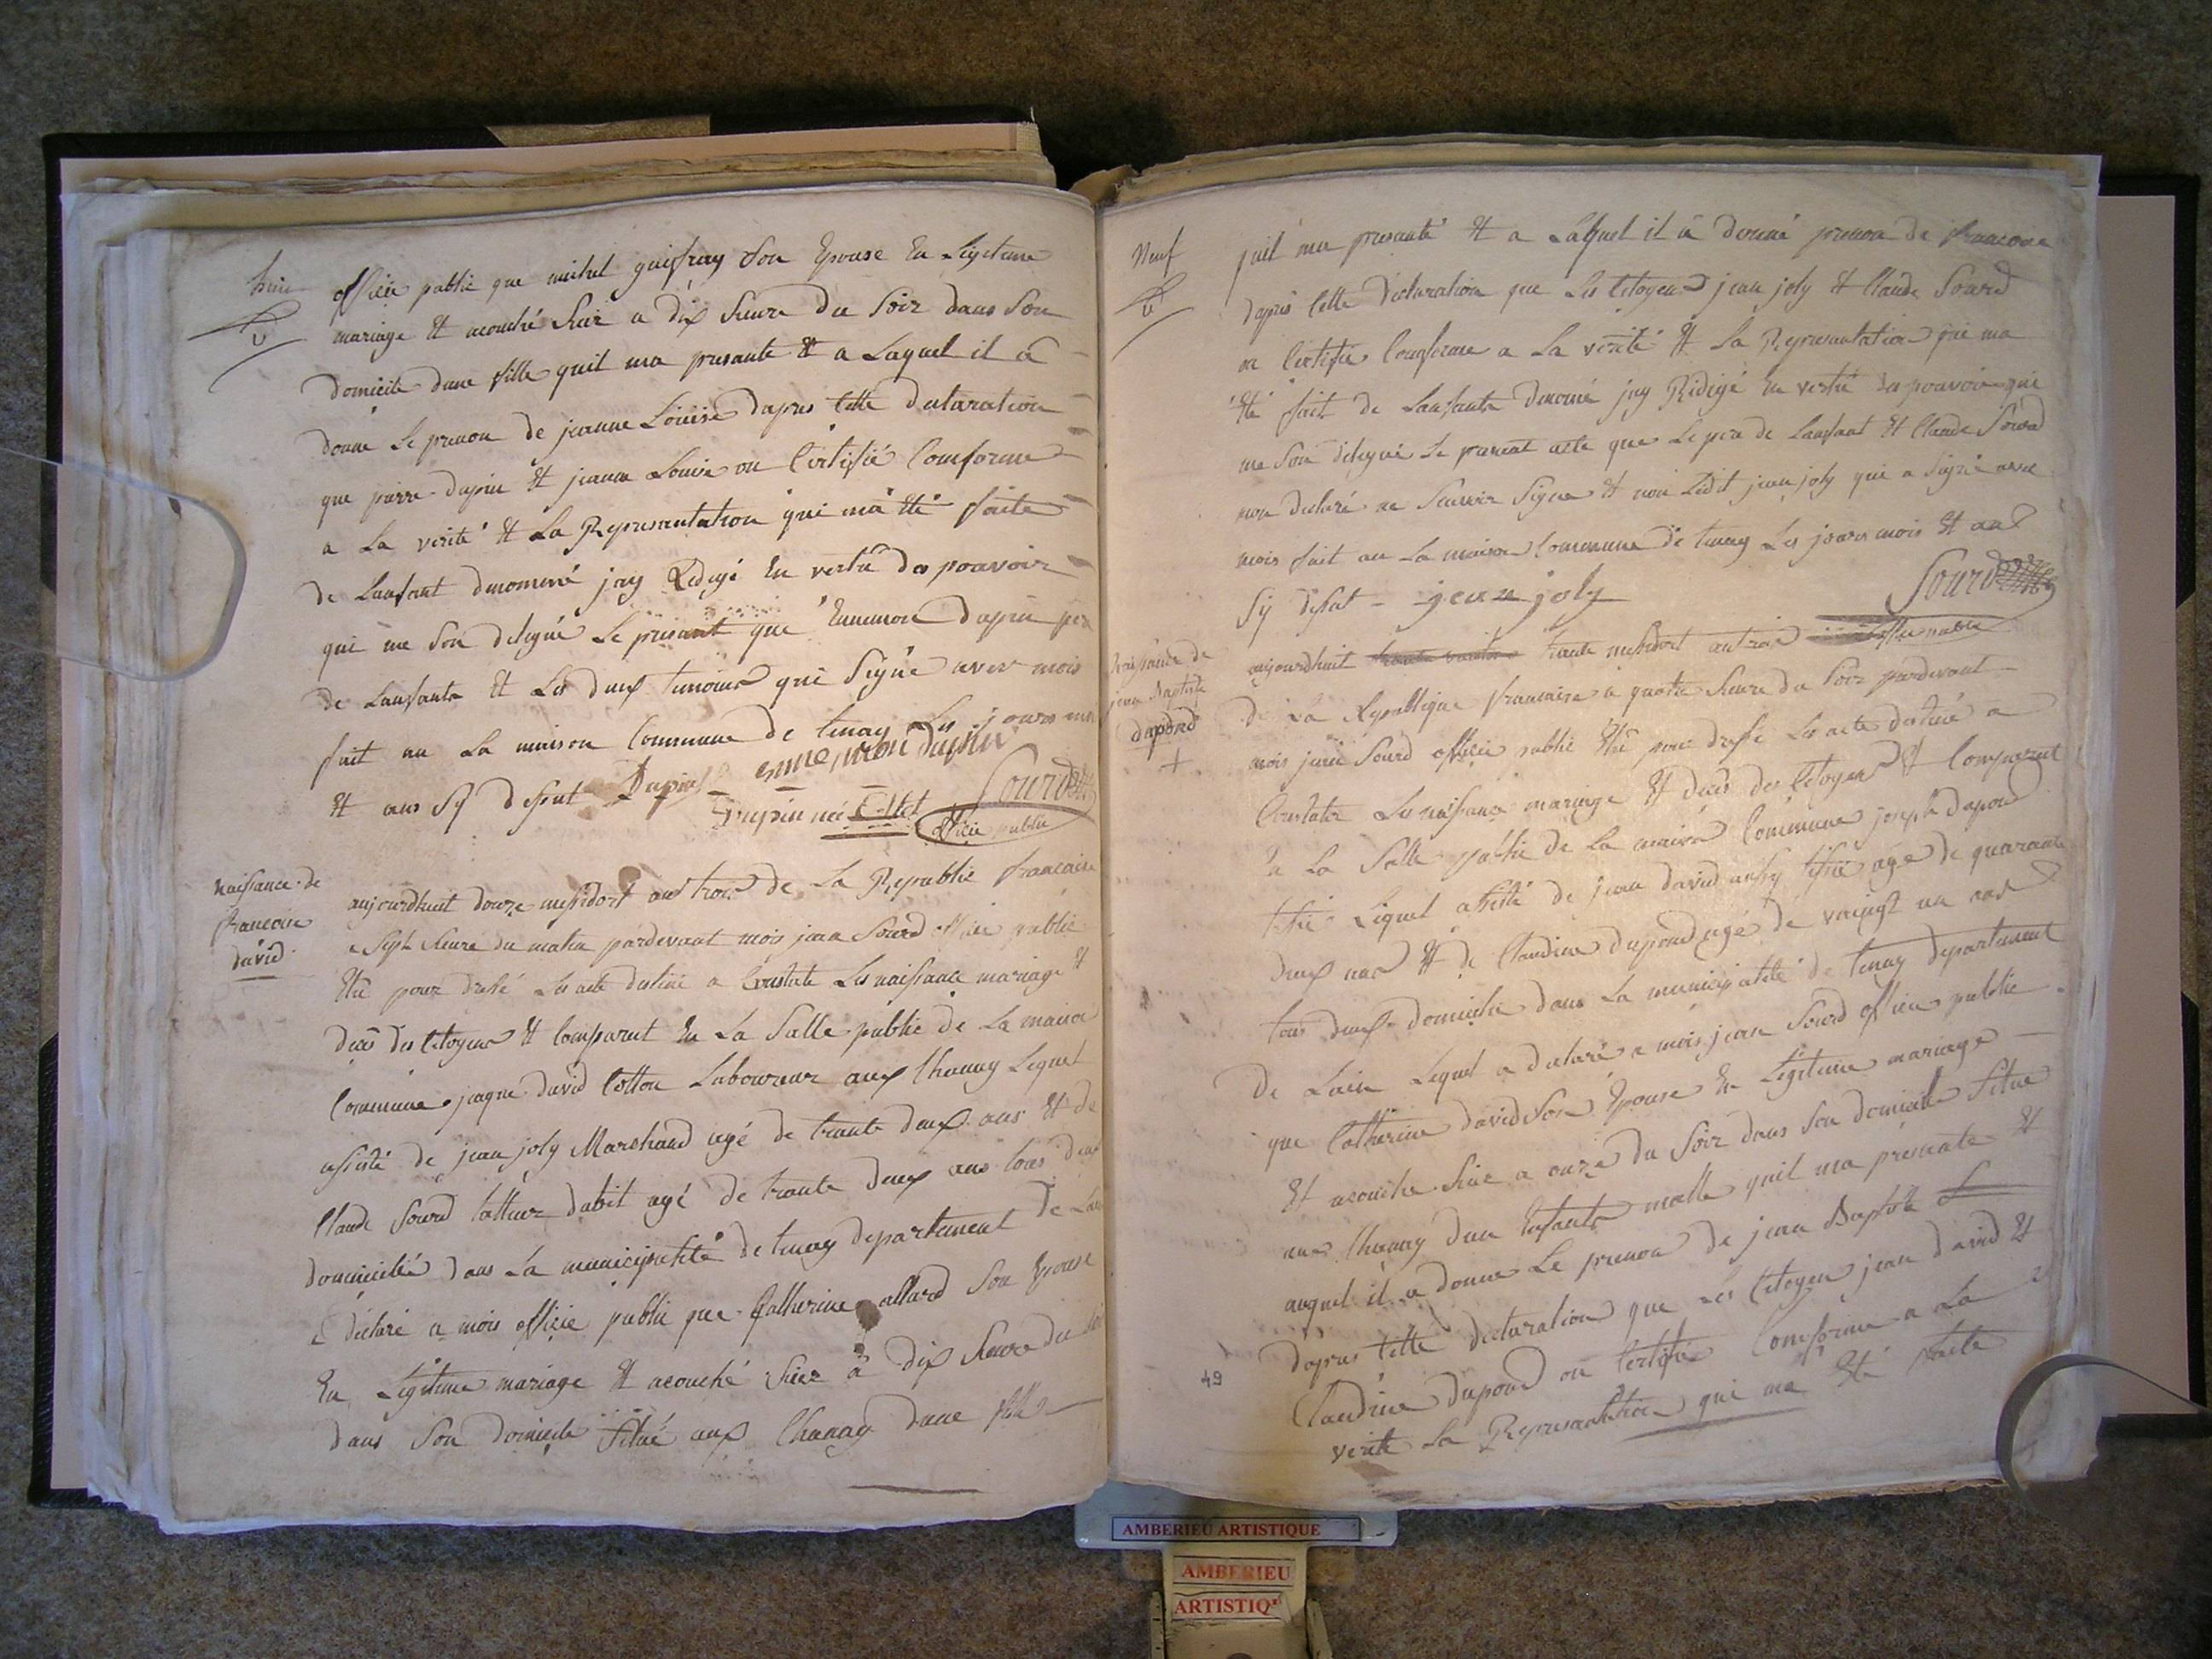 huit
officie public que michel guifray Son Epouse En Legitime
mariage Et acouché hier a dix heure du Soir dans Son
domicile dune fille quil ma presante Et a Laquel il a
donné Le prenon de jeanne Louise dapres cette declaration
que pierre dupin Et jeanne Louise on Certifié Comforme
a La verité Et La Representation qui ma Eté faite
de Lanfant denommé jay Redigé En vertu des pouvoir
qui me Son delegué Le presant que Ennemon dupin per
de Lanfants Et Les deux temoins qui Signe avec mois
fait au La maison Commune de tenay Les jours moi
Et ans Sy desut Dupin ennemon dupin
Dupin née Collet Sourd
officie public
naissance de
francoise
david
aujourdhuit douze messidort ant trois de La Republic francaise
a Sept heure du matin pardevant mois jean Sourd officie public
Elu pour dressé Les acte destiné a Constate Les naissance mariage Et
decés des Citoyens Et Comparut En La Salle public de La maison
Commune jaque david Cotton Laboureur aux Chanay Lequel
assisté de jean joly Marchand agé de trante deux ans Et de
Claude Sourd tallieur dabit agé de trante deux ans tous deux
domicilié dans La municipalité de tenay departement de Lain
a declaré a mois officie public que Catherine allard Son Epouse
En Legitime mariage Et acouché hier a dix heure du soir
dans Son domicile Situé aux Chanay dune fille
Neuf
quil ma presanté Et a Laquel il a donné prenon de francoise
dapres Cette declaration que Les Citoyens jean joly Et Claude Sourd
on Certifie Comforme a La verité Et La Representation qui ma
Eté fait de Lanfants denomé jay Redigé En vertu des pouvoir qui
me Son delegué Le presant acte que Le pere de Lanfant Et Claude Sourd
mon declaré ne Scavoir Signer Et non Ledit jean joly qui a Signé avec
mois fait au La maison Commune de tenay Les jours mois Et ans
Sy desut - jean joly Sourd
officie public
Naissance de
jean Baptiste
dupond
+
aujourdhuit trante messidort an trois
de La Republique francaise a quatre heure du Soir pardevant
mois jean Sourd officie public Elu pour dresse Les acte destiné a
Constater Les naissance mariage Et decés des Citoyens Et Comparut
En La Salle public de La maison Commune joseph dupond
tissié Lequel assisté de jean david aussy tissié agé de quarante
deux ans Et de Claudine dupond agé de vaingt un ans
tous deux domicilié dans La municipalité de tenay departement
de Lain Lequel a declaré a mois jean Sourd officie public
que Catherine david Son Epouse En Legitime mariage
Et acouche hier a onze du Soir dans Son domicille Situe
aux Chanay dun Enfants malle quil ma presante Et
auquel il a donne Le prenon de jean Baptiste
dapres Cette declaration que Les Citoyen jean david Et
Claudine dupond on Certifié Comforme a La
verite La Representation qui ma Eté faite
49
AMBERIEU ARTISTIQUE
AMBERIEU
ARTISTIQ